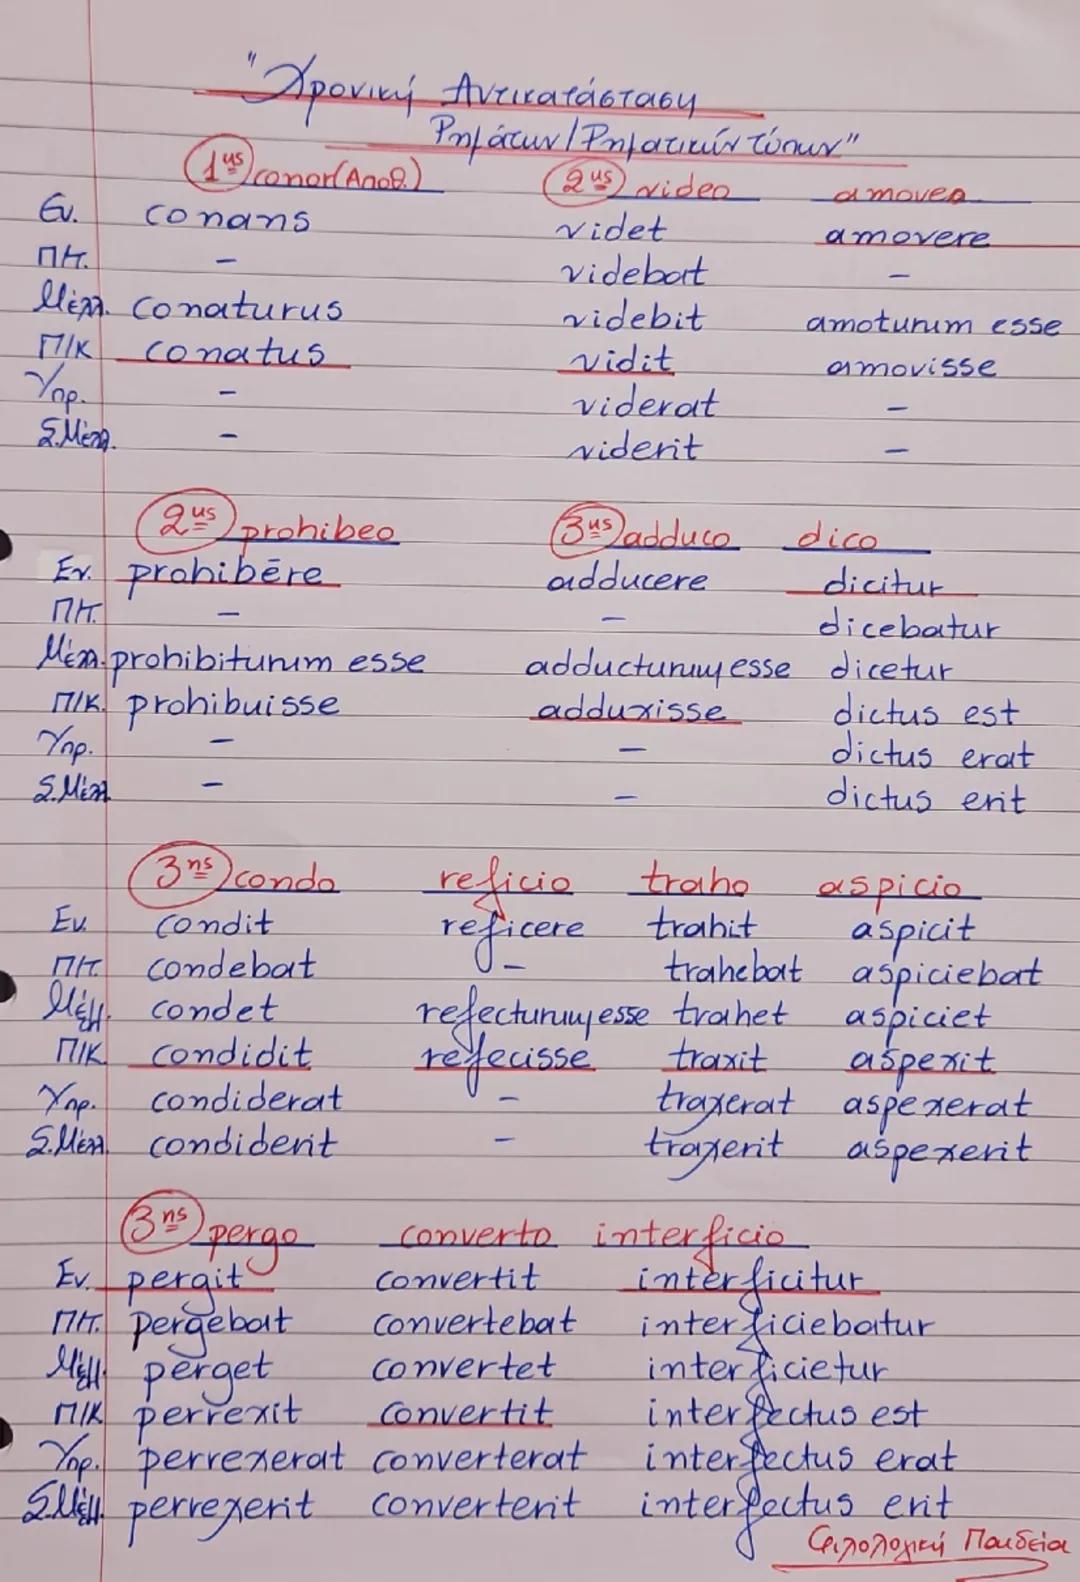 "Χρονική Αντικατάσταση
Ρημάτων/Ρηματικών τύπων"
1ης conor(Αποθ.) 2ης video amoveo
Εν. conans videt amovere
ΠΤ. - videbat -
Μέλλ. conaturus videbit amoturum esse
Π/Κ conatus vidit amovisse
Υπρ. - viderat -
Σ.Μέλλ. - viderit -
2ης prohibeo 3ης adduco dico
Εν. prohibēre adducere dicitur
ΠΤ. - - dicebatur
Μέλλ. prohibiturum esse adducturum esse dicetur
Π/Κ. prohibuisse adduxisse dictus est
Υπρ. - - dictus erat
Σ.Μέλλ - - dictus erit
3ης condo reficio traho aspicio
Εν. condit reficere trahit aspicit
ΠΤ. condebat - trahebat aspiciebat
Μέλλ. condet refecturum esse trahet aspiciet
Π/Κ condidit refecisse traxit aspexit
Υπρ. condiderat - traxerat aspexerat
Σ.Μέλλ. condiderit - traxerit aspexerit
3ης pergo converto interficio
Εν. pergit convertit interficitur
ΠΤ. pergebat convertebat interficiebatur
Μέλλ. perget convertet interficietur
Π/Κ perrexit convertit interfectus est
Υπρ. perrexerat converterat interfectus erat
Σ.Μέλλ. perrexerit converterit interfectus erit
Φιλολογική Παιδεία